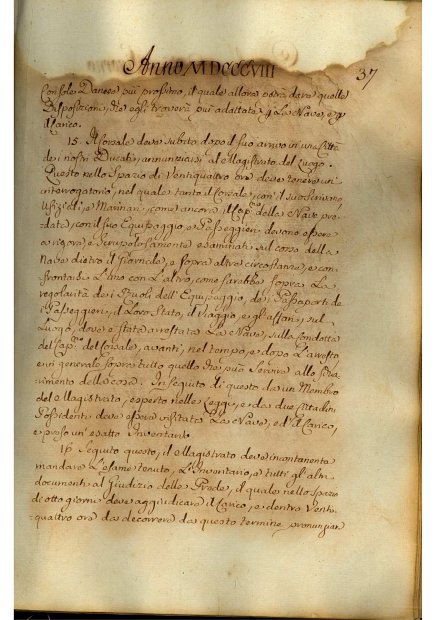 Anno MDCCCVIII
37
Console Danese più prossimo, il quale allora potrà dare quelle
disposizioni, che egli troverà più adattate p la Nave, e p il
Carico.
15. Il Corsale deve subito dopo il suo arrivo in una Città
dei nostri Ducati, annunziarsi al Magistrato del Luogo.
Questo nello Spazio di Ventiquattro ore deve tenere un'
interrogatorio, nel quale tanto il Corsale, con il suo
Ufiziali, e Marinari, come ancora il Cap.º della Nave pre-
data, con il suo Equipaggio e Passeggieri, devono essere
a rigore, e Scrupolosamente esaminati sul corso della
Nave dietro il Giornale, e sopra altre circostanze, e con-
frontarsi L'uno con L'altro, come sarebbe sopra La
regolarità dei Ruoli dell'Equipaggio, de i Passaporti de
i Passeggieri, il Loro Stato, il Viaggio, e gl'affari, sul
Luogo, dove è stata arrestata La Nave, sulla condotta
del Cap.º del Corsale, avanti, nel tempo, e dopo L'arresto
e in generale sopra tutto quello che può Servire allo schia-
rimento della cosa. In seguito di questo da un Membro
del Magistrato, esperto nelle Leggi, e da due Cittadini
Possidenti deve essere visitata La Nave, ed il Carico,
e preso un'esatto Inventario.
16. Seguito questo, il Magistrato deve incontanente
mandare L'esame tenuto, L'Inventario, e tutti gli altri
documenti al Giudizio delle Prede, il quale nello spazio
di otto giorni deve aggiudicare il Carico, e dentro Venti-
quattro ore da decorrere da questo termine pronunziar